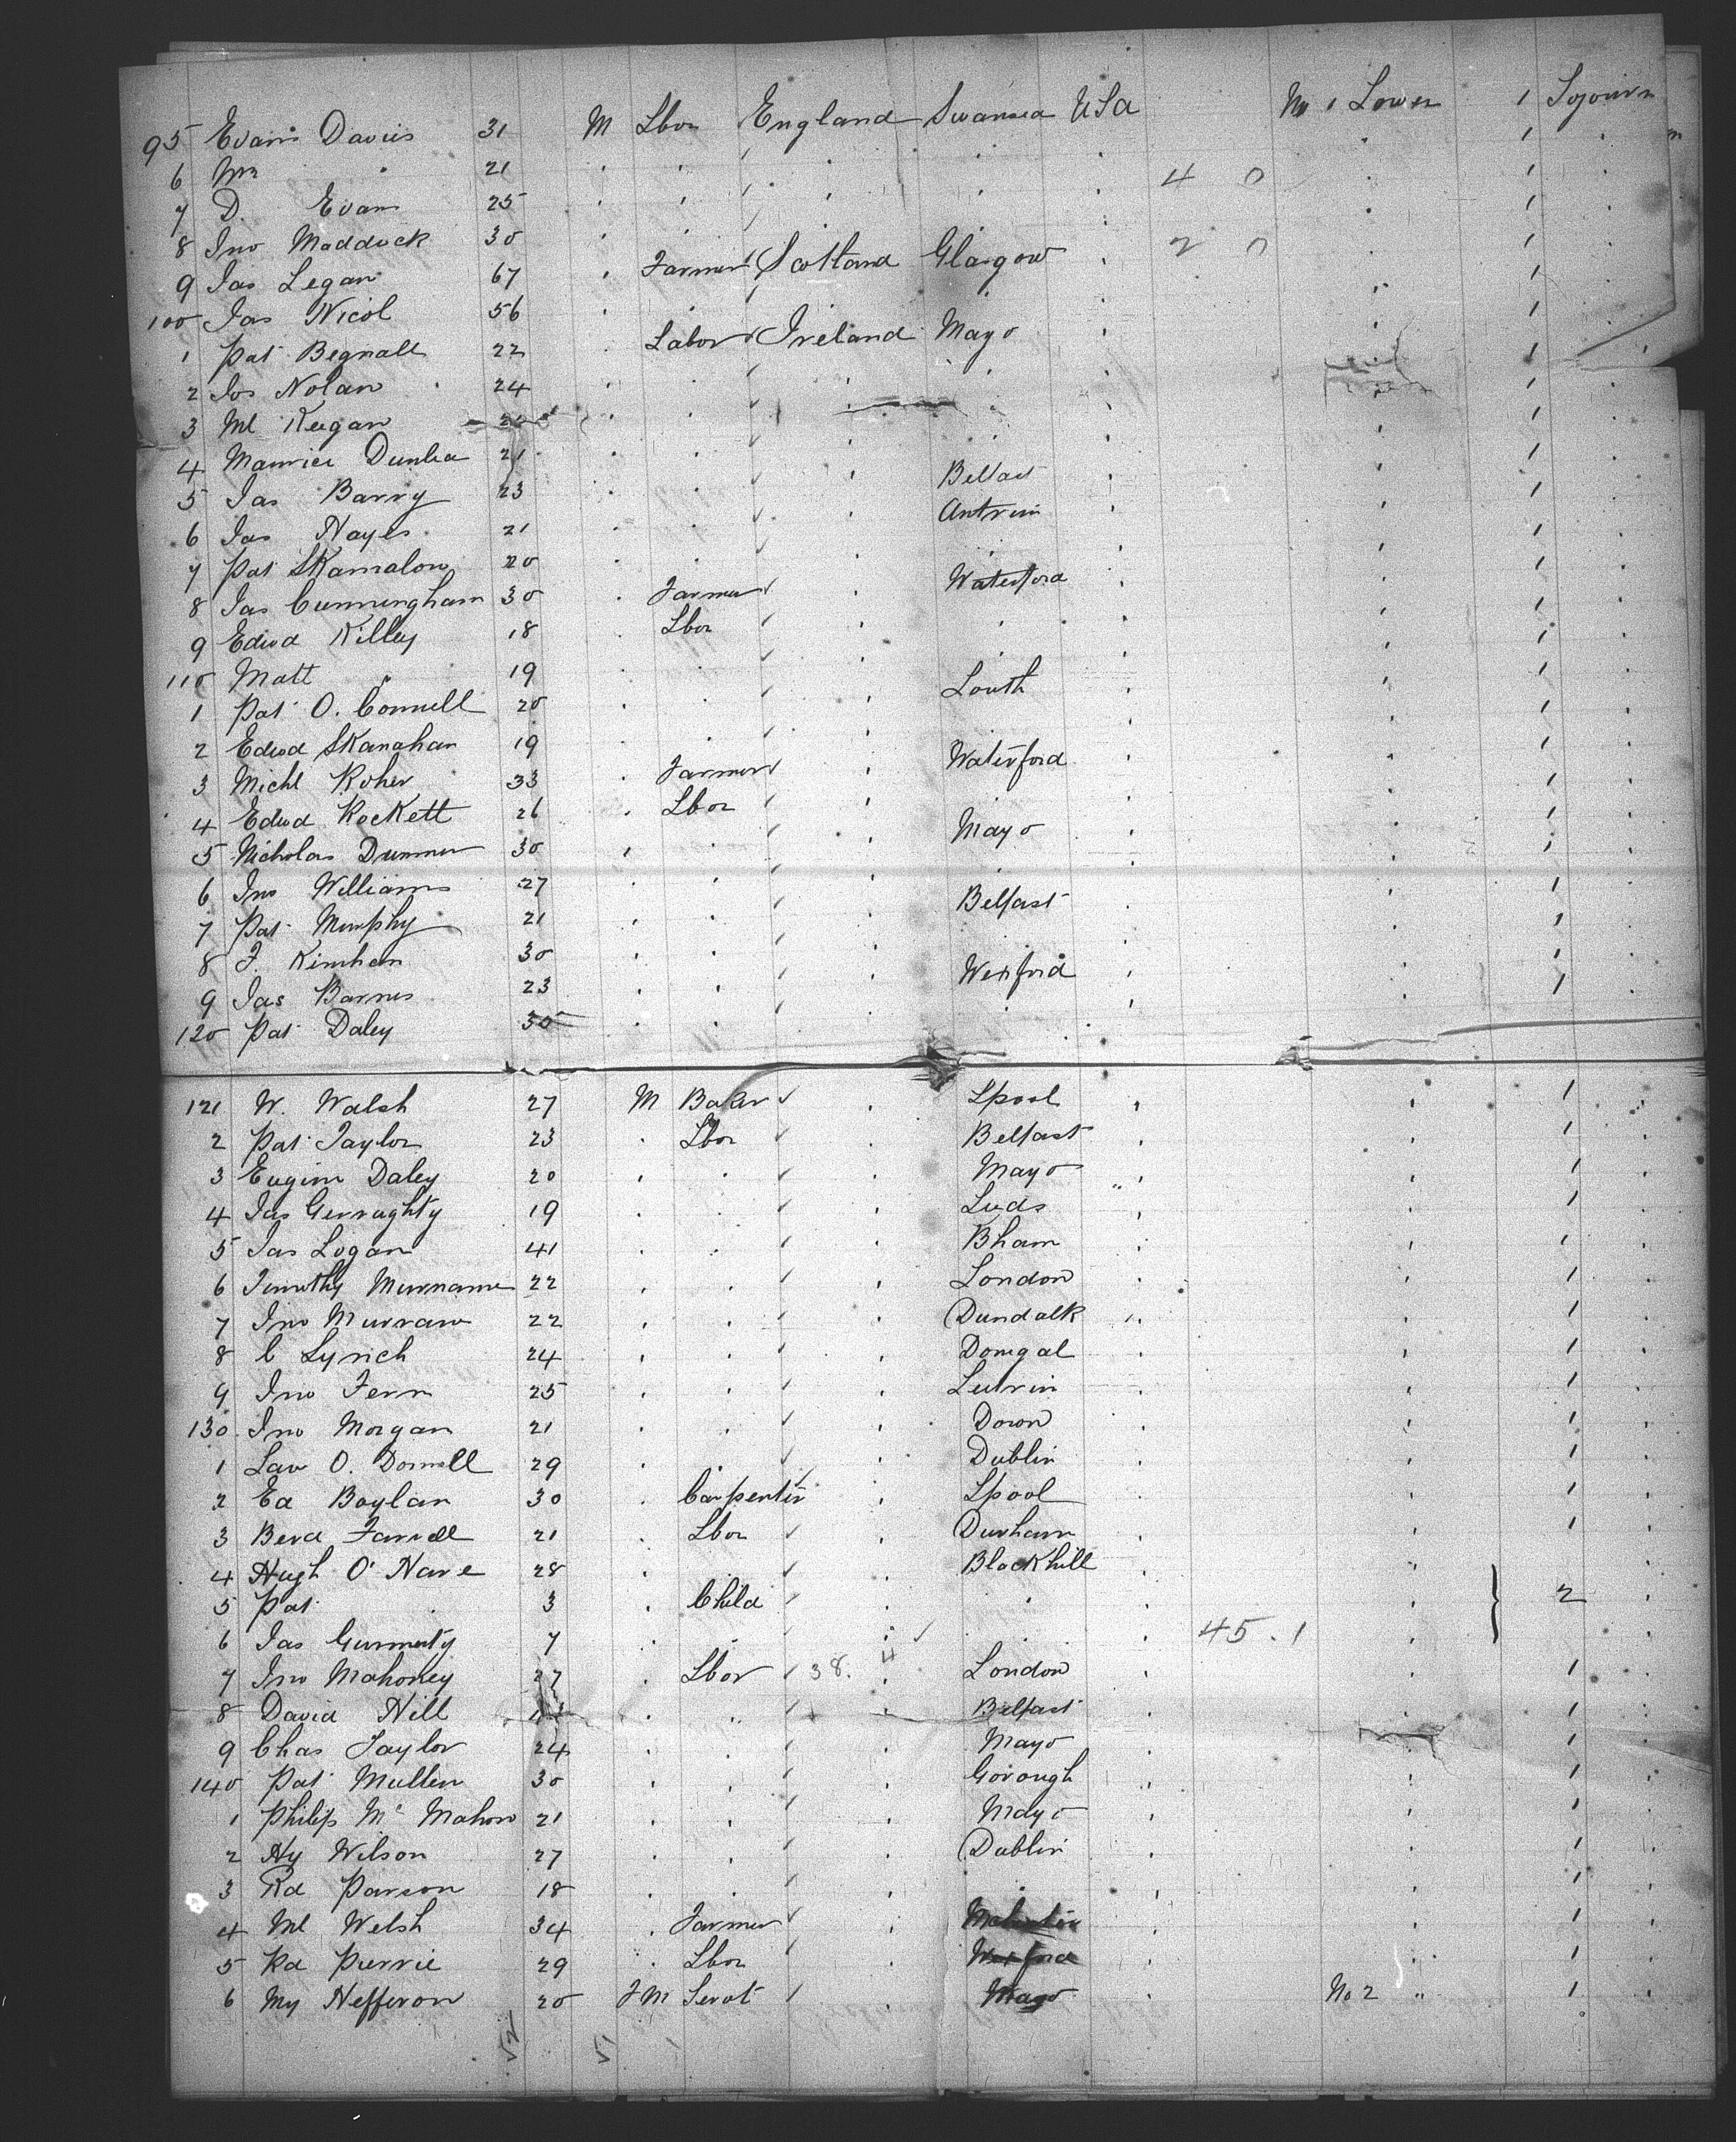 95 Evan Davies 31 M Lbor England Swansea USA No 1 Lower 1 Sojourn
6 Wm " 21 " " " " " " 1 "
7 D. Evans 25 " " " " " 4 0 " 1 "
8 Jno Maddock 30 " " " " " " 1 "
9 Jas Legan 67 " Farmer Scotland Glasgow " 2 0 " 1 "
100 Jas Nicol 56 " " 1 "
1 Pat Begnall 22 " Labor Ireland Mayo " " 1 "
2 Jos Nolan 24 " " " " " 1 "
3 Ml Keegan " " " " " 1 "
4 Maurice Dunlea 21 " " " " " " 1 "
5 Jas Barry 23 " " " Belfast " " 1 "
6 Jas Hayes 21 " " " Antrim " " 1 "
7 Pat Skamalon 20 " " " " " " 1 "
8 Jas Cunningham 30 " Farmer " Waterford " " 1 "
9 Edwd Killey 18 " Lbor " " " " 1 "
110 Matt " 19 " " " " " " 1 "
1 Pat O. Connell 20 " " " Louth " " 1 "
2 Edwd Skanahan 19 " " " " " " 1 "
3 Michl Roher 33 " Farmer " Waterford " " 1 "
4 Edwd Rockett 26 " Lbor " " " " 1 "
5 Nicholas Drummer 30 " " " Mayo " " 1 "
6 Jno Williams 27 " " " " " " 1 "
7 Pat Murphy 21 " " " Belfast " " 1 "
8 J. Kinhan 30 " " " " " " 1 "
9 Jas Barnes 23 " " " Wexford " " 1 "
120 Pat Daley 30 " " " " " " 1 "
121 W. Walsh 27 M Baker " Lpool " " 1 "
2 Pat Taylor 23 " Lbor " Belfast " " 1 "
3 Eugine Daley 20 " " " Mayo " " 1 "
4 Jas Gerraghty 19 " " " Leeds " " 1 "
5 Jas Logan 41 " " " Bham " " 1 "
6 Timothy Murname 22 " " " London " " 1 "
7 Jno Murraw 22 " " " Dundalk " " 1 "
8 C Lynch 24 " " " Donegal " " 1 "
9 Jno Fern 25 " " " Leitrim " " 1 "
130 Jno Morgan 21 " " " Down " " 1 "
1 Law O. Donnell 29 " " " Dublin " " 1 "
2 Ed Boylan 30 " Carpenter " Lpool " " 1 "
3 Berd Farrell 21 " Lbor " Durham " " 1 "
4 Hugh O' Hare 28 " " " Blackhill " "
5 Pat " 3 " Child " " " " 2 "
6 Jas Gurmerty 7 " " " " " 45 . 1 "
7 Jno Mahoney 27 " Lbor 38. 4 London " " 1 "
8 David Hill " " " Belfast " " 1 "
9 Chas Taylor 24 " " " Mayo " " 1 "
140 Pat Mullen 30 " " " Gorough " " 1 "
1 Philip Mc Mahon 21 " " " Mayo " " 1 "
2 Hy Wilson 27 " " " Dublin " " 1 "
3 Rd Parson 18 " " " " " " 1 "
4 Ml Welsh 34 " Farmer " " " 1 "
5 Rd Purvie 29 " Lbor " Wexford " " 1 "
6 My Hefferon 20 F M Servt " Mayo " No 2 " 1 "